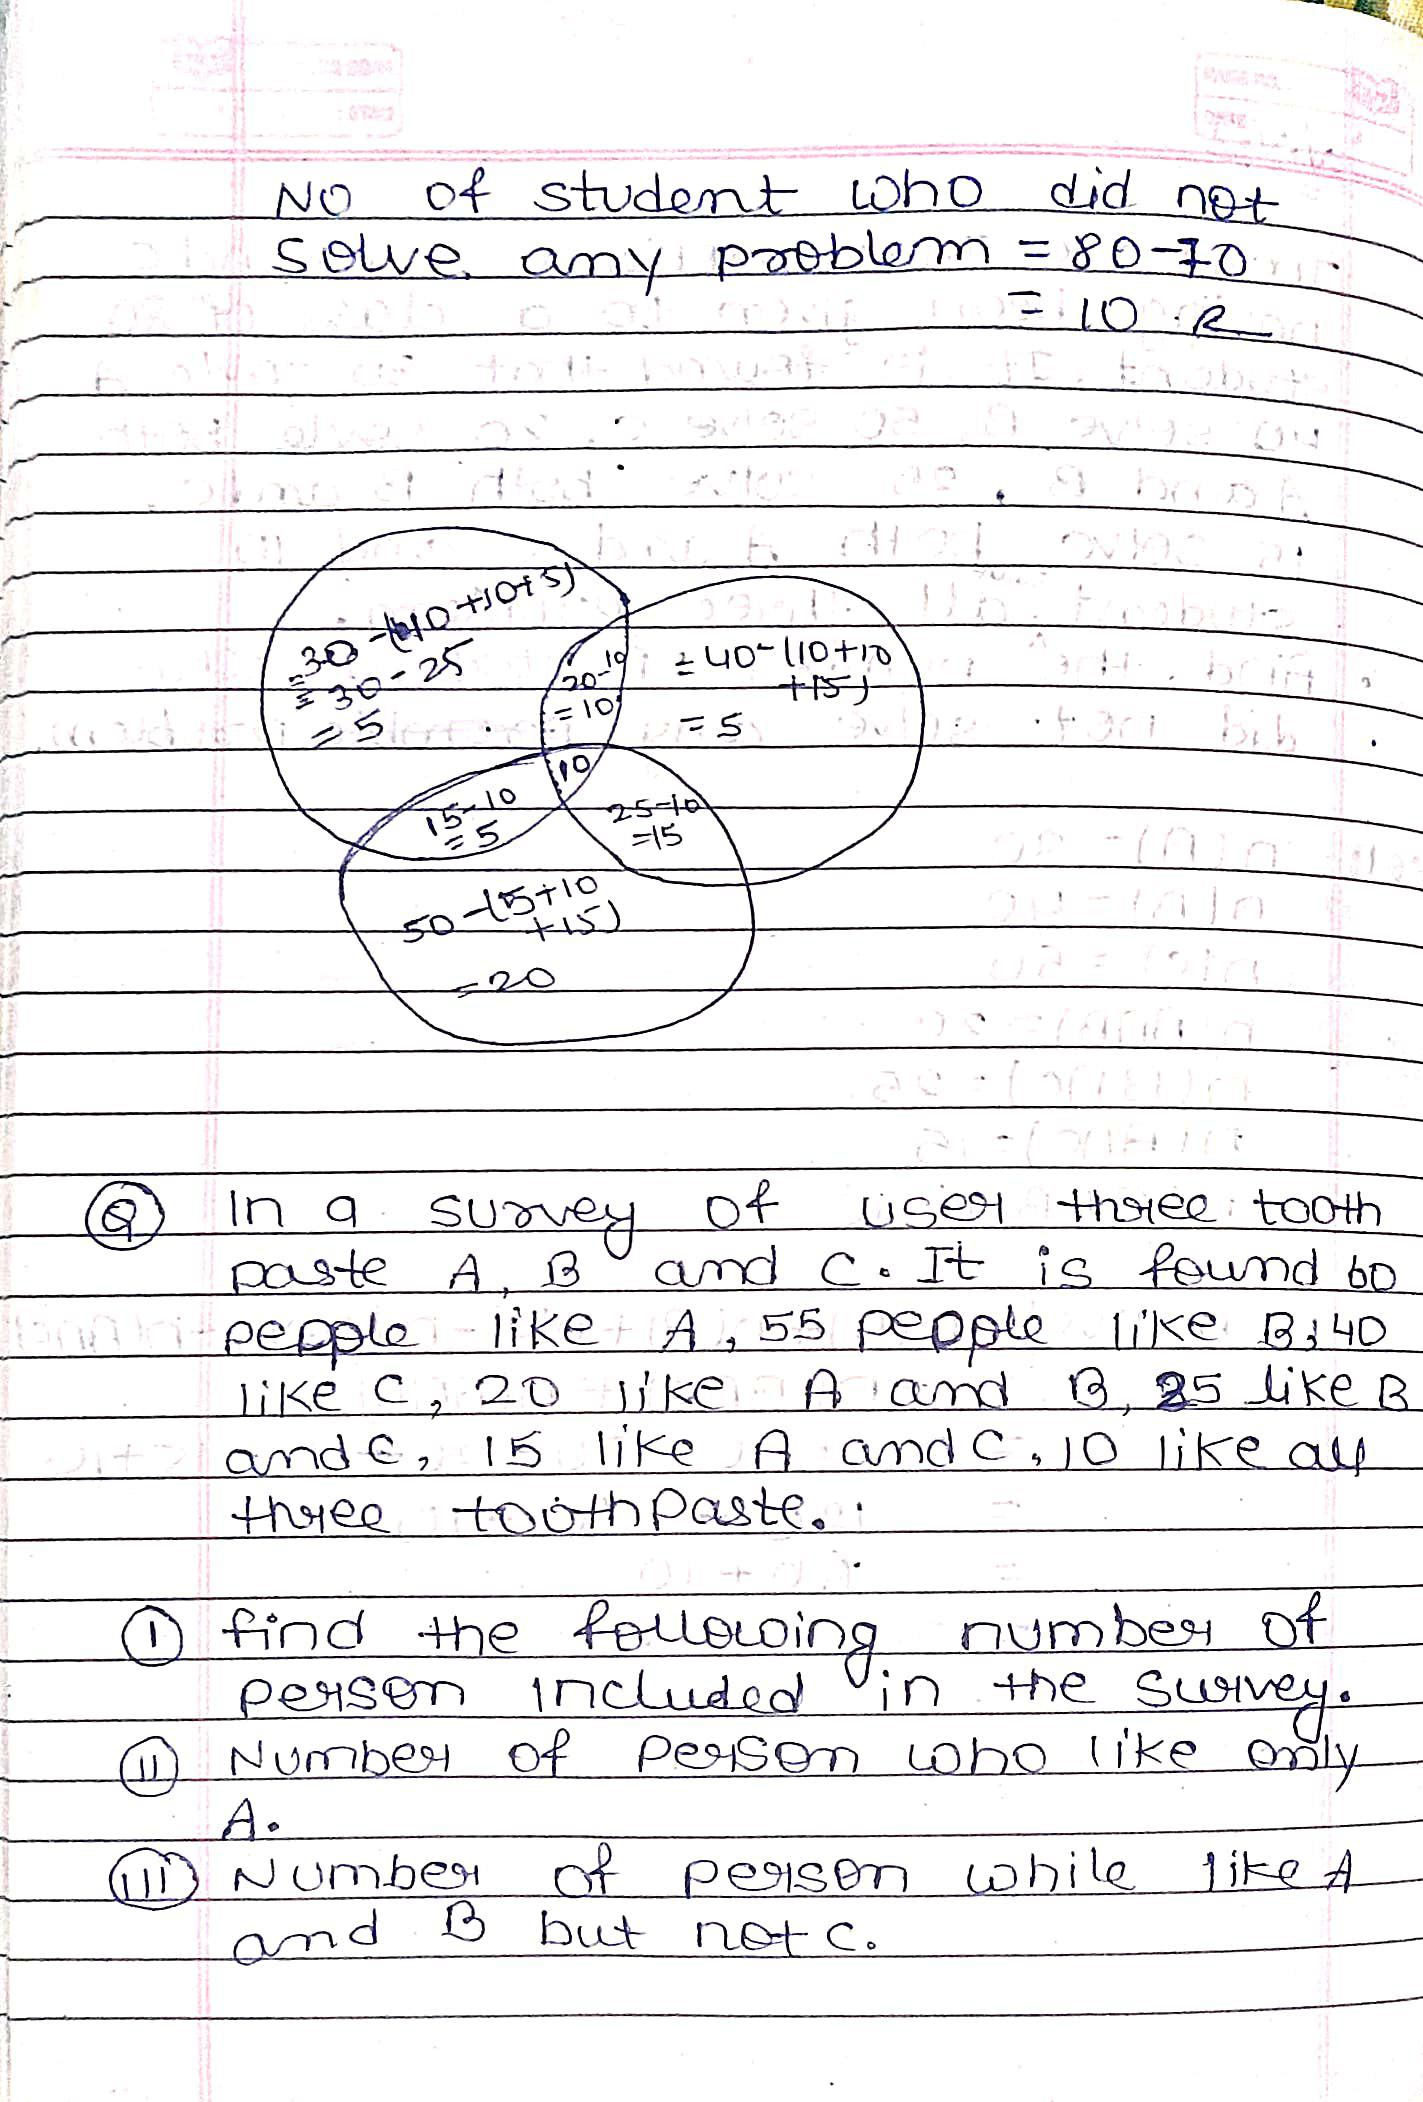 No of student who did not
solve any problem = 80-70
= 10 .
= 30 - (10+10+5)
= 30 - 25
= 5
20-10
= 10
= 40-(10+10
+15)
= 5
10
15-10
= 5
25-10
=15
50-(5+10
+15)
=20
Q In a survey of user three tooth
paste A, B and C. It is found 60
people like A, 55 people like B, 40
like C, 20 like A and B, 25 like B
and C, 15 like A and C, 10 like all
three toothpaste.
I find the following number of
person included in the survey.
II Number of person who like only
A.
III Number of person while like A
and B but not C.